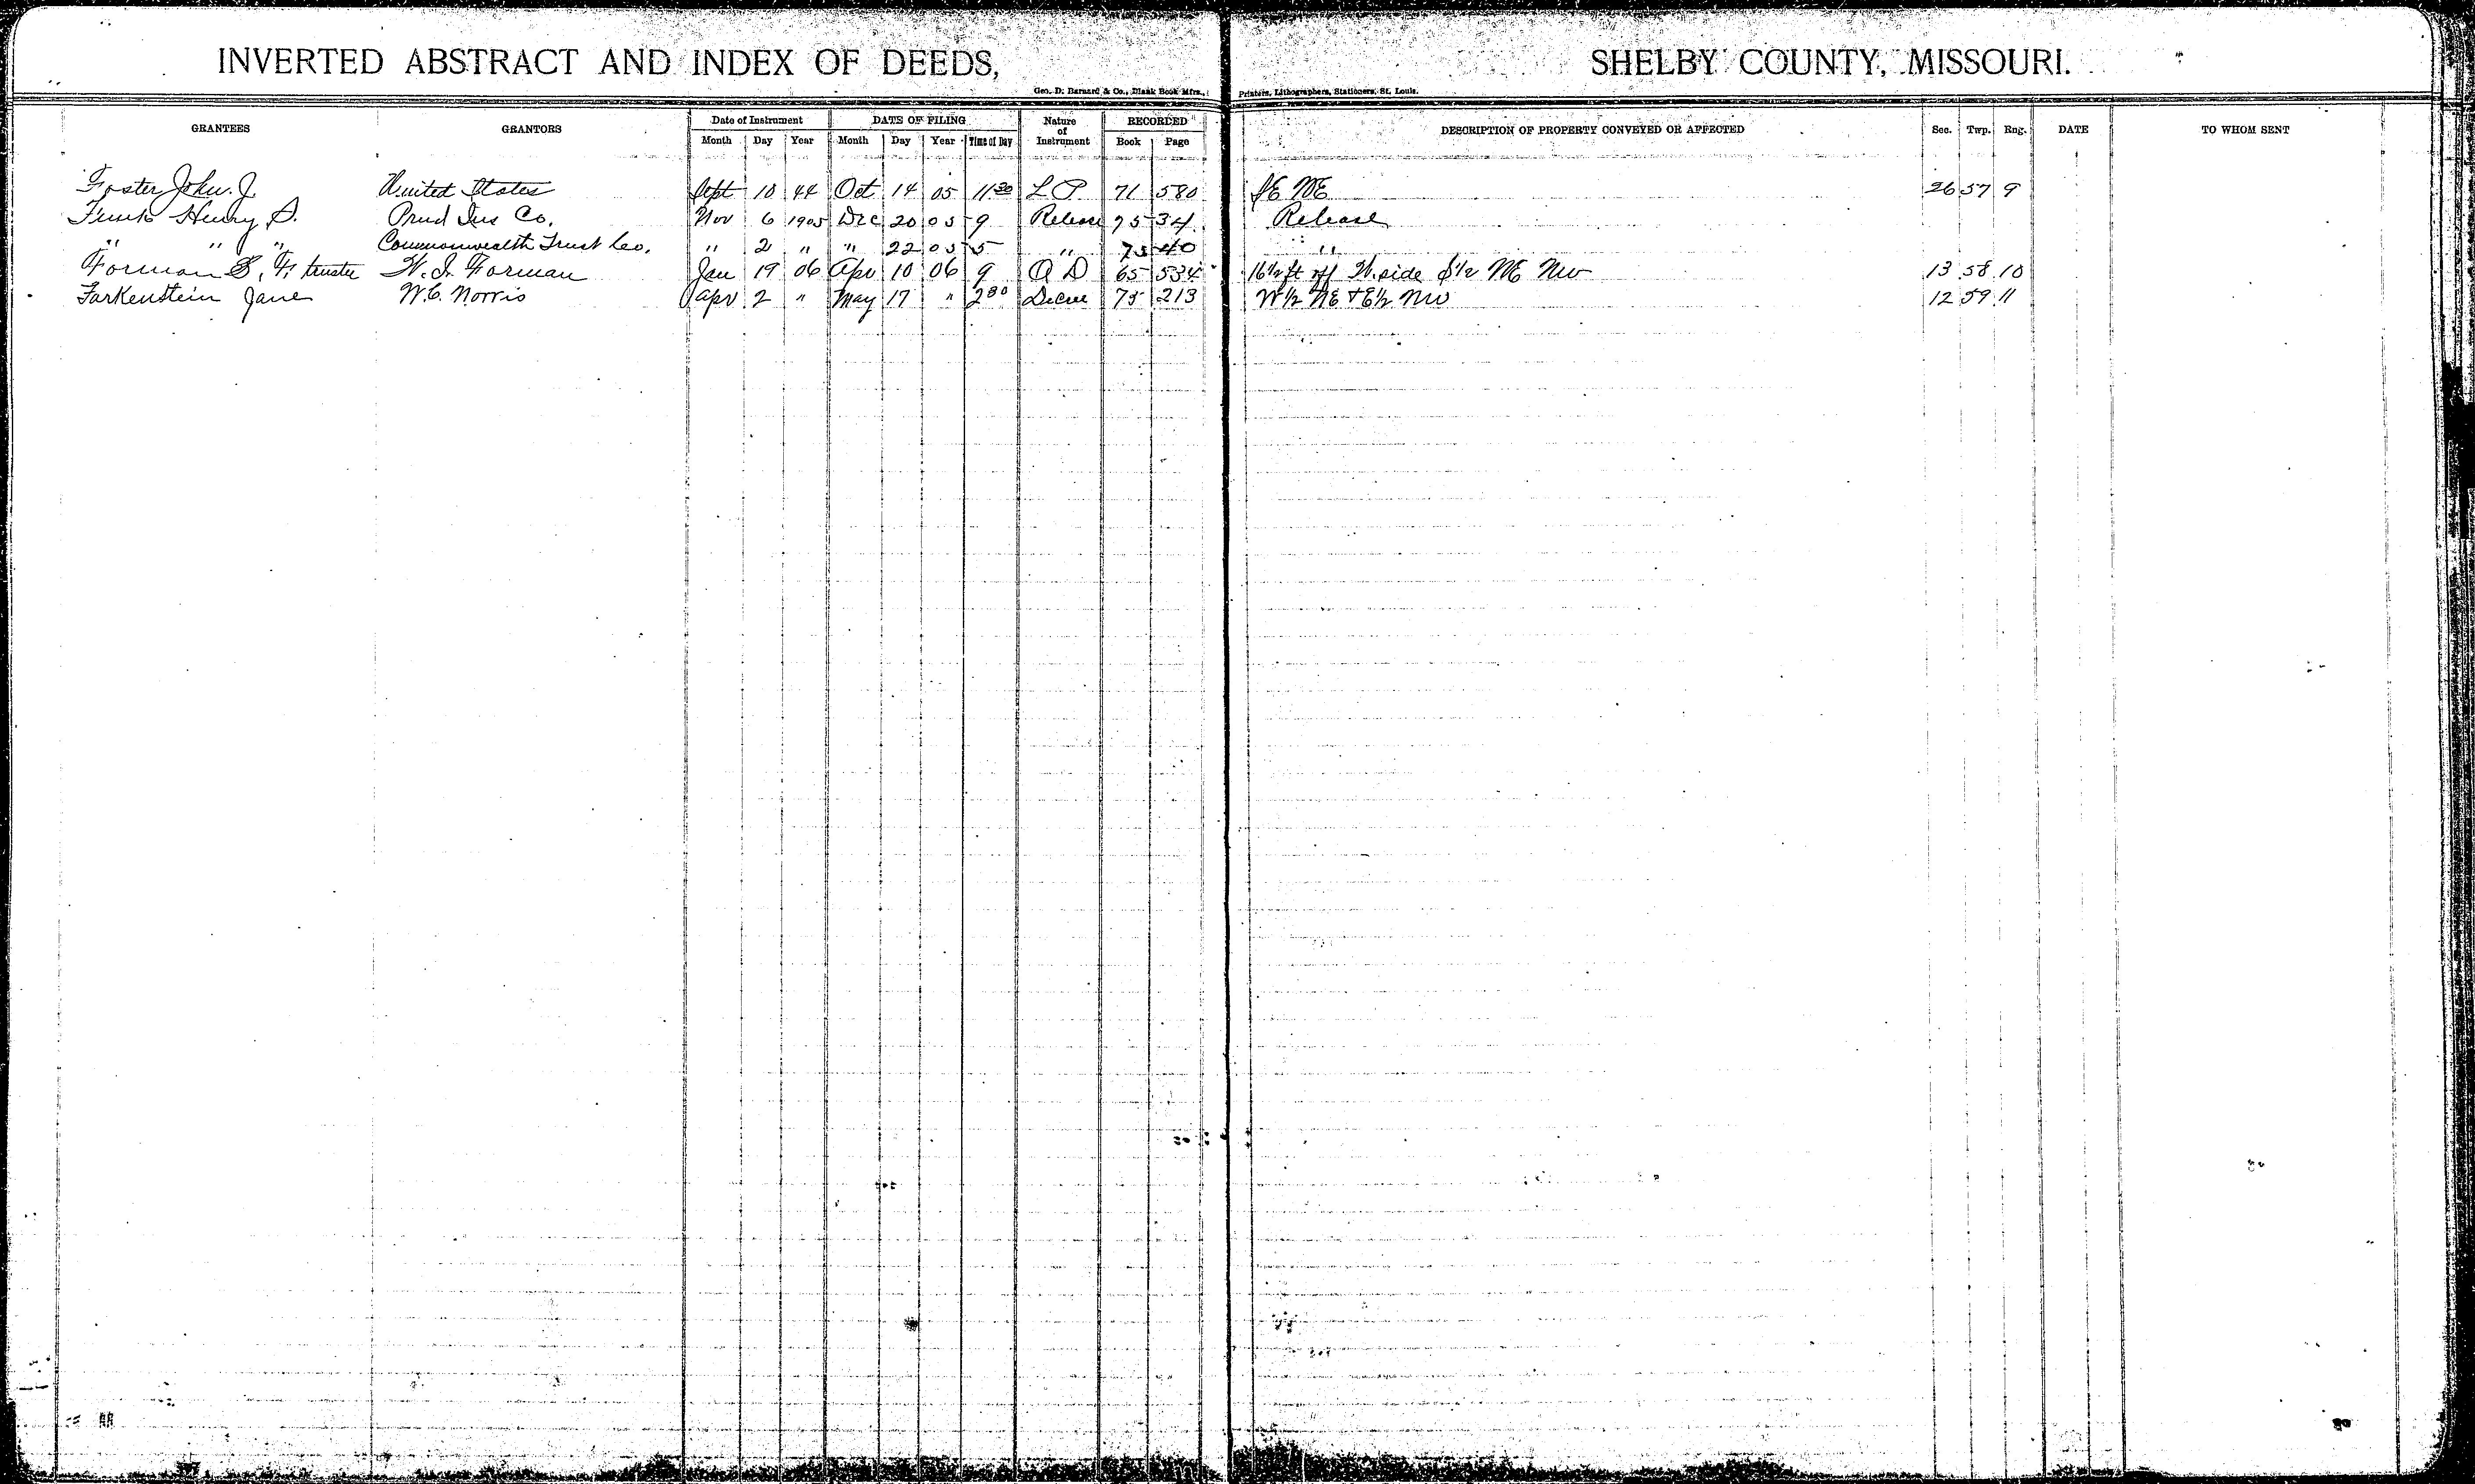 INVERTED ABSTRACT AND INDEX OF DEEDS, SHELBY COUNTY, MISSOURI.
Geo. D. Barnard & Co., Blank Book Mfrs., Printers, Lithographers, Stationers, St. Louis.
GRANTEES GRANTORS Date of Instrument DATE OF FILING Nature of Instrument RECORDED DESCRIPTION OF PROPERTY CONVEYED OR AFFECTED Sec. Twp. Rng. DATE TO WHOM SENT
Month Day Year Month Day Year Time of Day Book Page
Foster John. J. United States Sept 10 44 Oct 14 05 11 30 L P 71 580 SE NE 26 57 9
Funk Henry S. Prud Ins Co. Nov 6 1905 Dec 20 05 9 Release 75 34 Release
" " " Commonwealth Trust Co. " 2 " " 22 05 5 " 75 40 "
Forman S. F. trustee Forman Jan 19 06 Apr 10 06 9 Q D 65 534 16 1/2 ft off side S 1/2 NE NW 13 58 10
Farkenstein Jane W. C. Norris Apr 2 " May 17 " 2 00 Decree 75 213 W 1/2 NE + E 1/2 NW 12 59 11